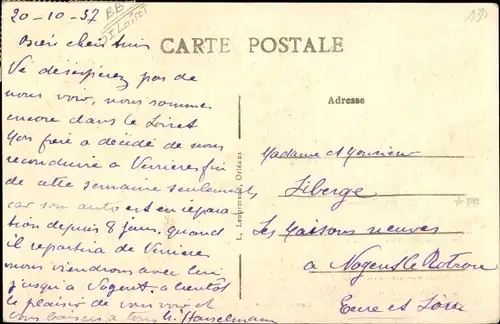 20-10-37
Biens chers amis
CARTE POSTALE
Ne désespérez pas de
nous voir, nous sommes
encore dans le Loiret
Mon frère a décidé de nous
reconduire à Verrières fin
de cette semaine seulement,
car son auto est en répara
tion depuis 8 jours, quand
il repartira de Verrières
nous viendrons avec lui
jusqu'à Nogent, a bientôt
le plaisir de vous voir et
vous baisers a tous
Adresse
Madame et Monsieur
Liberge
Les Maisons neuves
à Nogent le Rotrou
Eure et Loir
L. Lenormand, Orléans